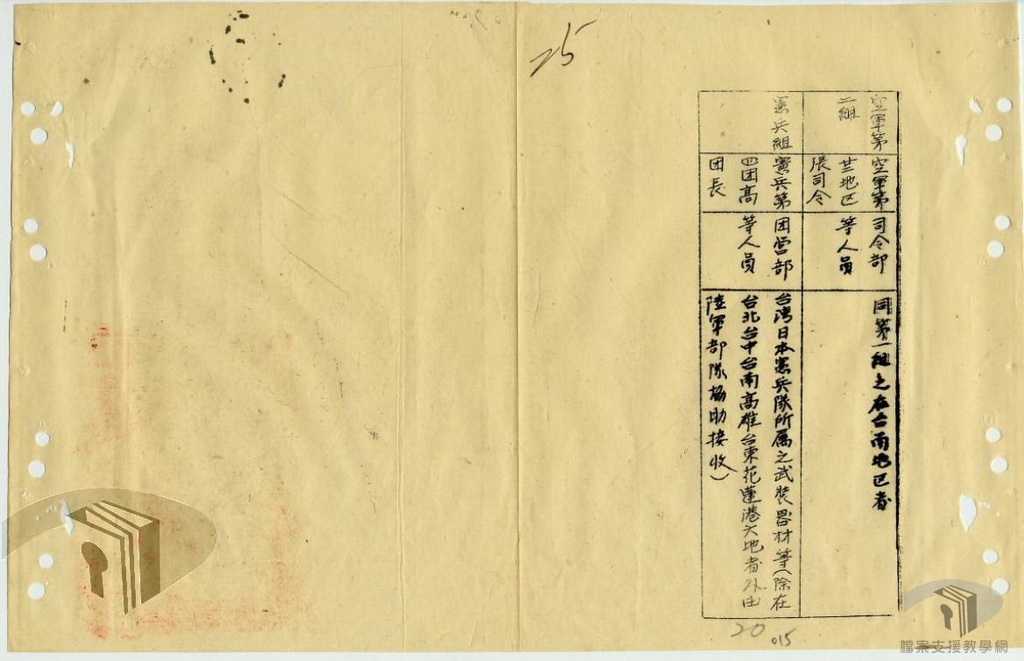 25
空軍第
二組
空軍第
廿二地区
張司令
司令部
等人員
同第一組之在台南地区者
憲兵組
憲兵第
四团高
团長
团营部
等人員
台湾日本憲兵隊所属之武裝器材等(除在
台北台中台南高雄台東花蓮港六地者外由
陸軍部隊協助接收)
20
015
檔案支援教學網